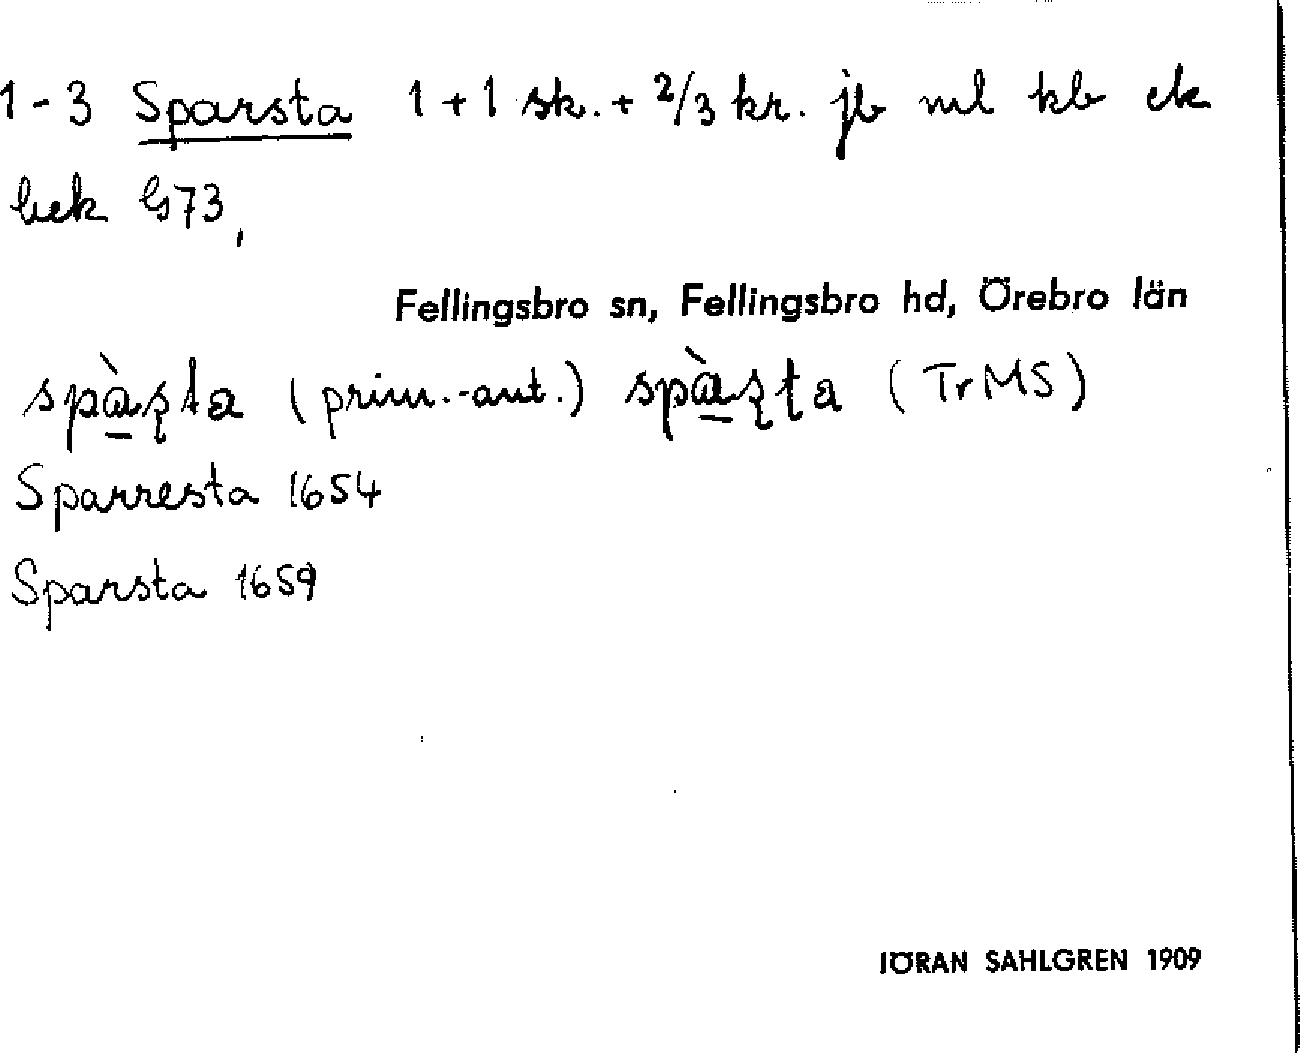 1-3 Sparsta 1+1 sk. + 2/3 kr. jb ml kb ek
bek G73,
Fellingsbro sn, Fellingsbro hd, Örebro län
(prim.-ant.) (TrMS)
Sparresta 1654
Sparsta 1659
JÖRAN SAHLGREN 1909